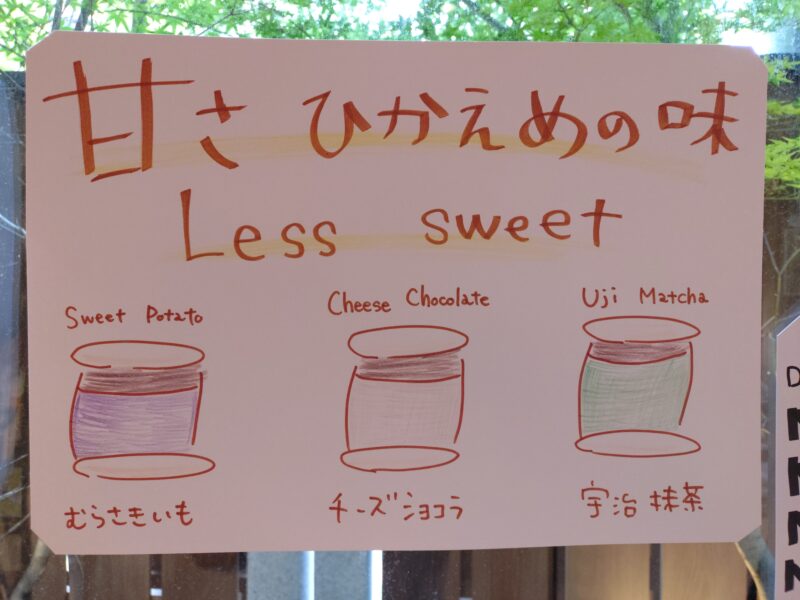 甘さ ひかえめの味
Less sweet
Sweet Potato
むらさきいも
Cheese Chocolate
チーズショコラ
Uji Matcha
宇治抹茶
D